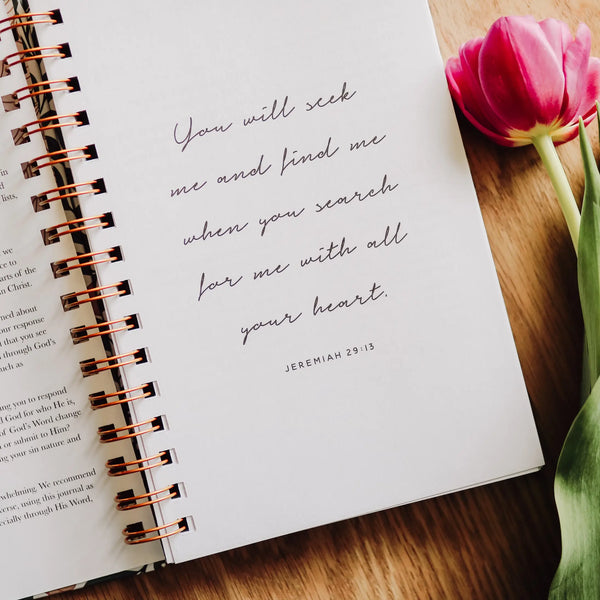 in
d
lists,
we
ce to
arts of the
n Christ.
ned about
our response
that you see
through God's
uch as
ng you to respond
God for who He is,
of God's Word change
or submit to Him?
ng your sin nature and
whelming. We recommend
verse, using this journal as
ecially through His Word.
You will seek
me and find me
when you search
for me with all
your heart.
JEREMIAH 29:13